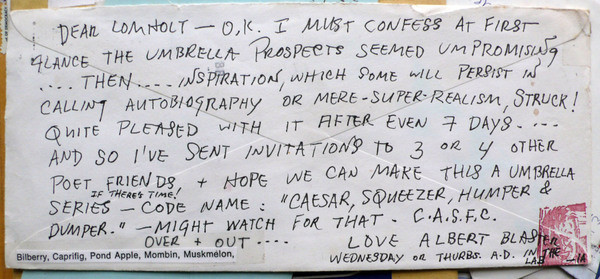 DEAR LOMHOLT — O.K. I MUST CONFESS AT FIRST
GLANCE THE UMBRELLA PROSPECTS SEEMED UMPROMISING
.... THEN..... INSPIRATION, WHICH SOME WILL PERSIST IN
CALLING AUTOBIOGRAPHY OR MERE-SUPER-REALISM, STRUCK!
QUITE PLEASED WITH IT AFTER EVEN 7 DAYS....
AND SO I'VE SENT INVITATIONS TO 3 OR 4 OTHER
POET FRIENDS + HOPE WE CAN MAKE THIS A UMBRELLA
IF THERE'S TIME!
SERIES — CODE NAME: "CAESAR, SQUEEZER, HUMPER &
DUMPER." — MIGHT WATCH FOR THAT - C.A.S.F.C.
OVER + OUT....
LOVE ALBERT
WEDNESDAY OR THURBS. A.D. IN THE
LAB
Bilberry, Caprifig, Pond Apple, Mombin, Muskmelon,